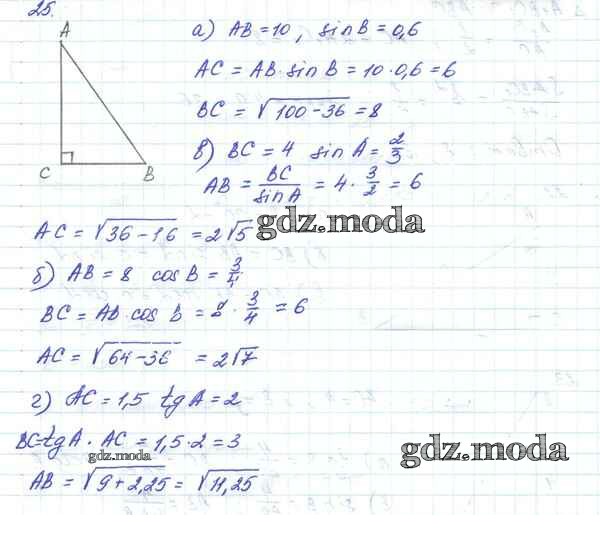 25.
A
C
B
а) AB = 10, sin B = 0,6
AC = AB · sin B = 10 · 0,6 = 6
BC = √(100 - 36) = 8
в) BC = 4 sin A = 2/3
AB = BC/sin A = 4 · 3/2 = 6
gdz.moda
AC = √(36 - 16) = 2√5
б) AB = 8 cos B = 3/4
BC = AB · cos b = 8 · 3/4 = 6
AC = √(64 - 36) = 2√7
г) AC = 1,5 tg A = 2
BC = tg A · AC = 1,5 · 2 = 3
gdz.moda
gdz.moda
AB = √(9 + 2,25) = √11,25